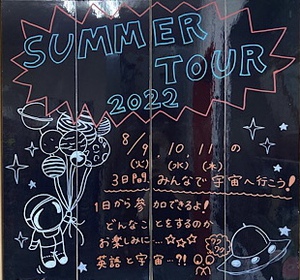 SUMMER
TOUR
2022
8/9.10.11の
(火) (水) (木)
3日間。みんなで宇宙へ行こう!
1日から参加できるよ!
どんなことをするのか
お楽しみに…☆☆☆
英語と宇宙…?!
ワクワク